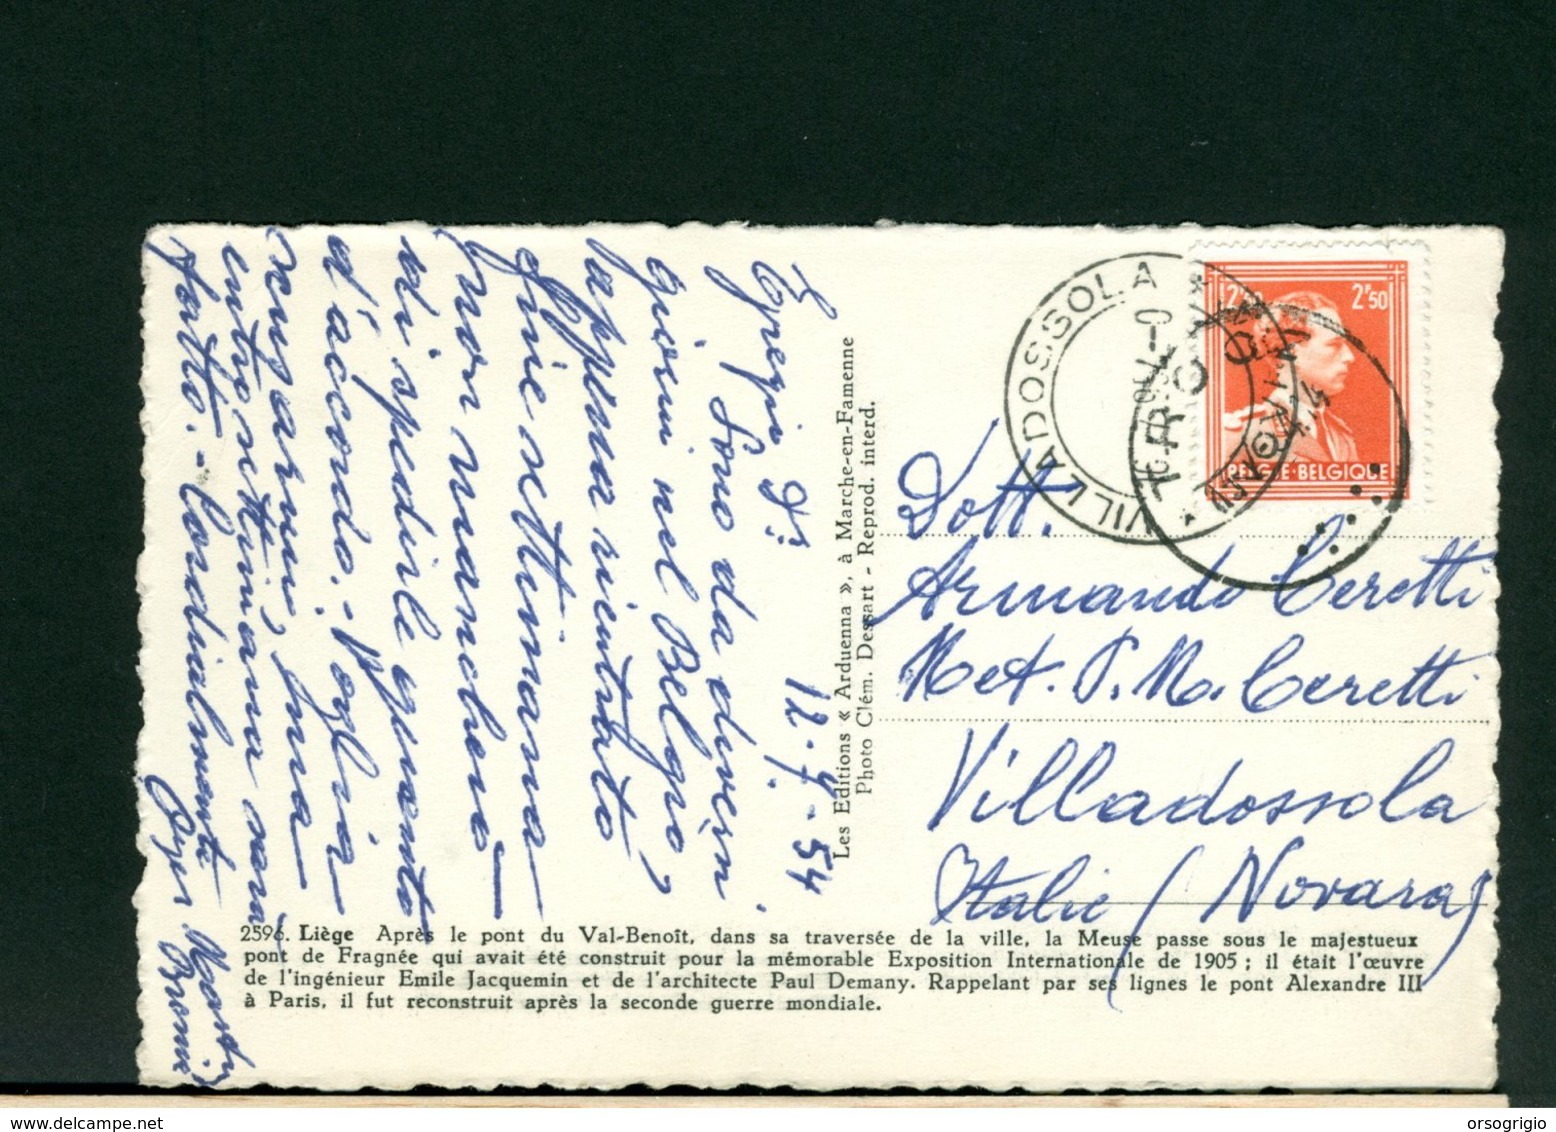 Egregio Dr.
12-7-54
Sono da diversi
giorni nel Belgio,
appena rientrato
fine settimana
non mancherò
di spedirle quanto
d'accordo. - Voglia
scusarmi, ma
entro settimana sarà
fatto. - Cordialmente
Les Editions « Arduenna », à Marche-en-Famenne
Photo Clém. Dessart - Reprod. interd.
VILLADOSSOLA
2F50
BELGIE-BELGIQUE
Dott.
Armando Ceretti
Met. P. M. Ceretti
Villadossola
Italie (Novara)
2596. Liège Après le pont du Val-Benoît, dans sa traversée de la ville, la Meuse passe sous le majestueux
pont de Fragnée qui avait été construit pour la mémorable Exposition Internationale de 1905 ; il était l'œuvre
de l'ingénieur Emile Jacquemin et de l'architecte Paul Demany. Rappelant par ses lignes le pont Alexandre III
à Paris, il fut reconstruit après la seconde guerre mondiale.
orsogrigio